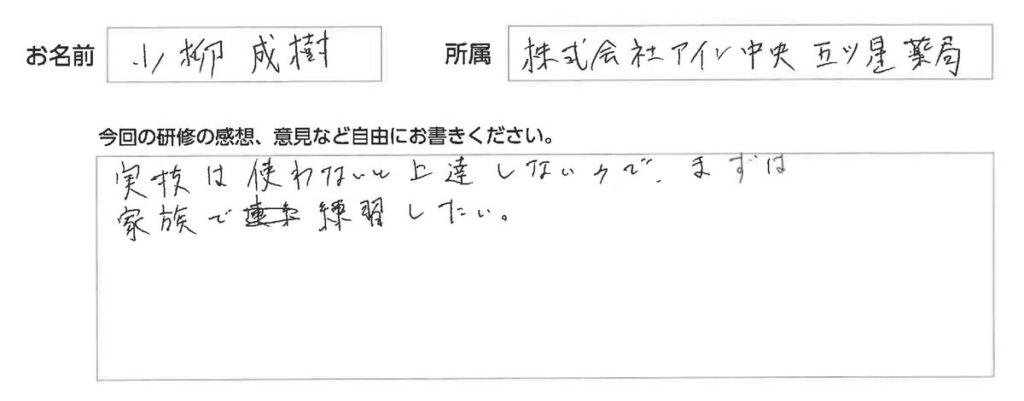 お名前 小柳 成樹 所属 株式会社アイレ中央 五ツ星薬局
今回の研修の感想、意見など自由にお書きください。
実技は使わないと上達しないので、まずは
家族で練習したい。